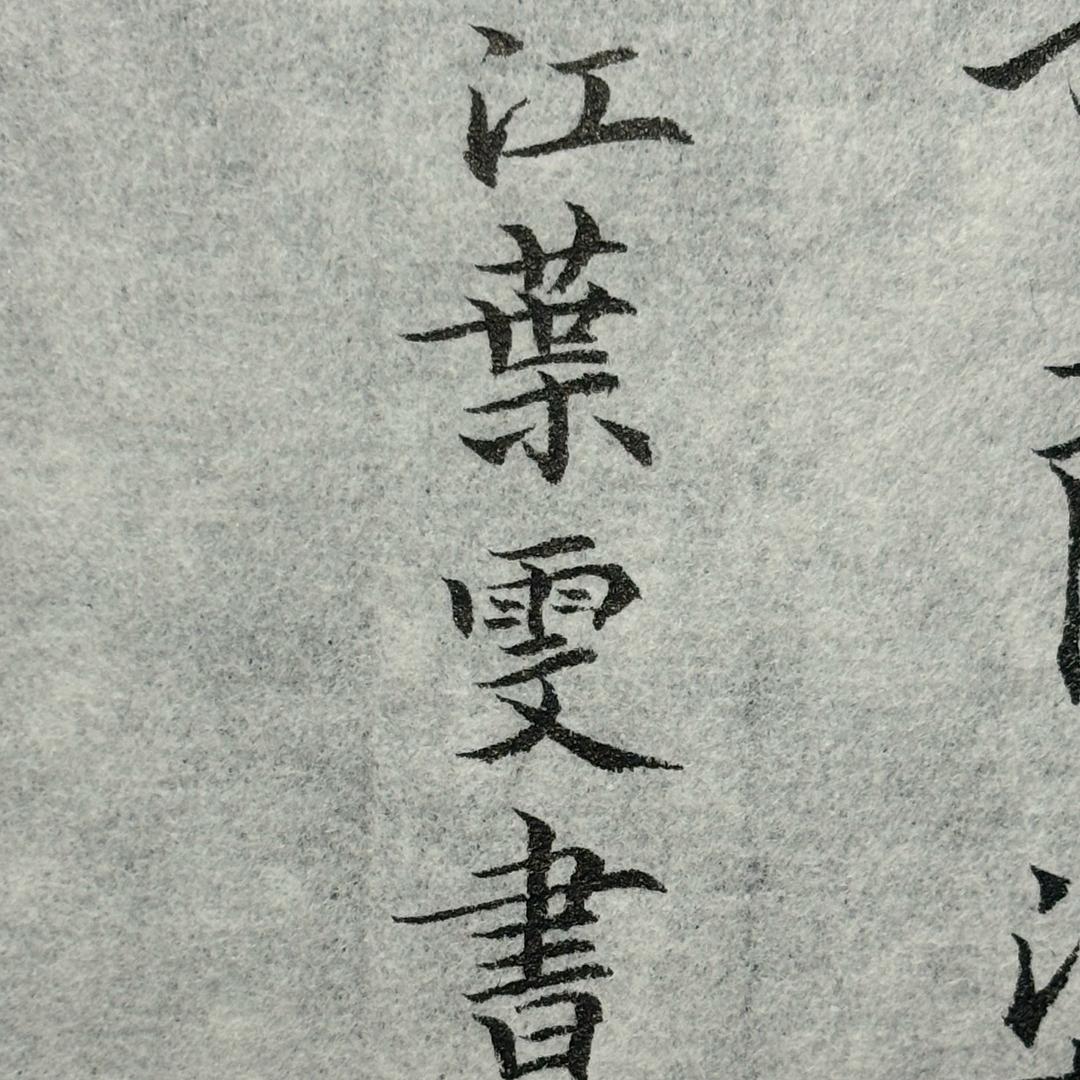 江葉雯書